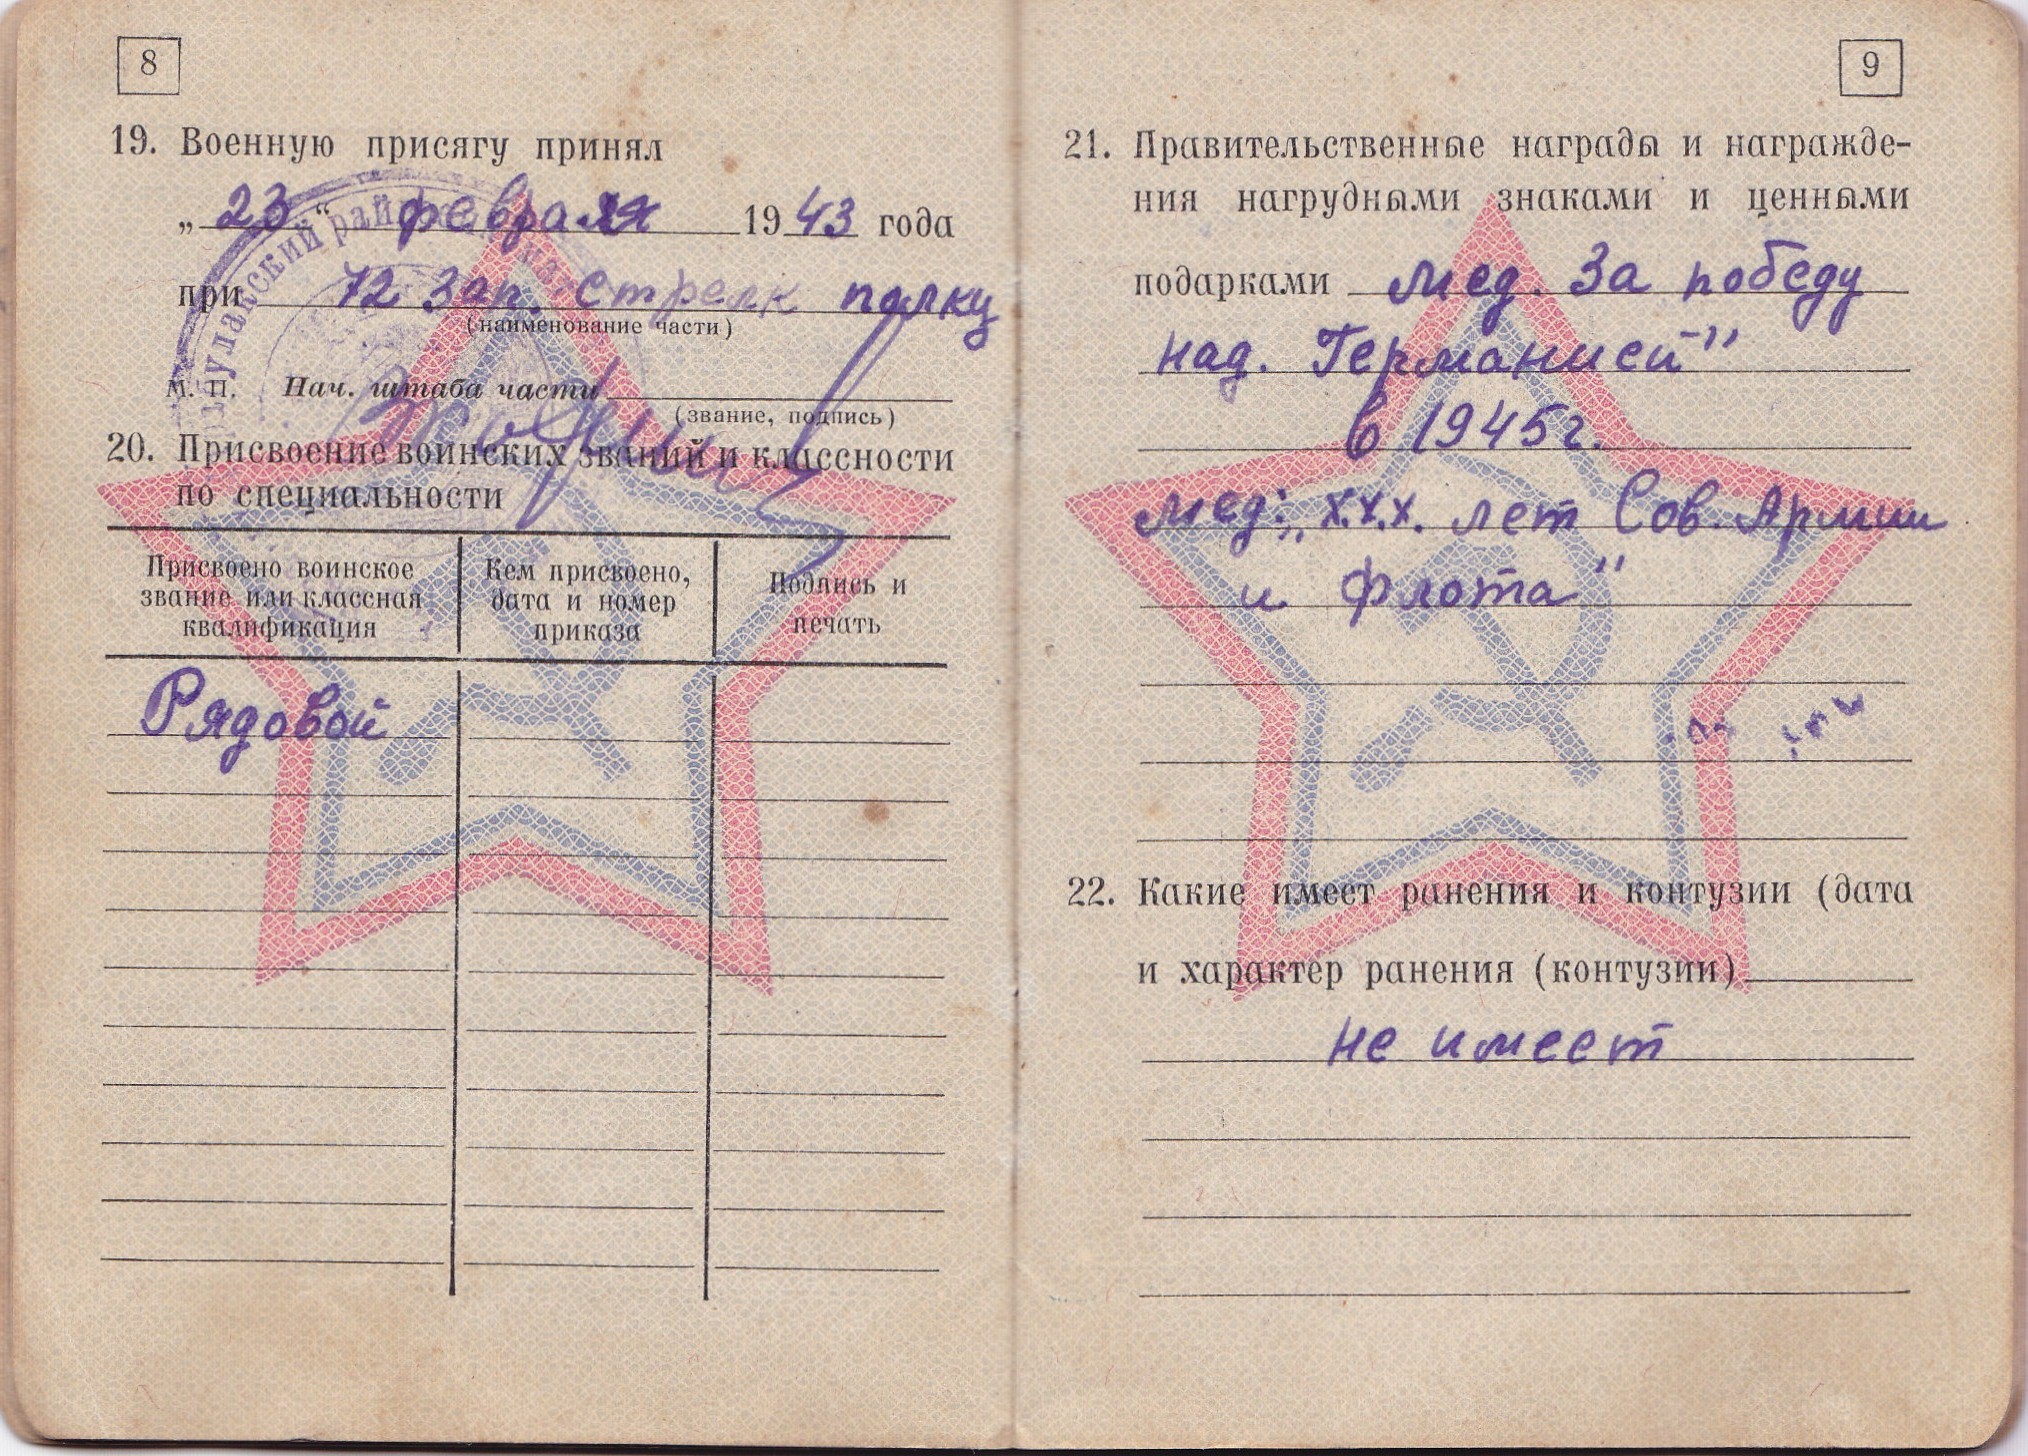 8
19. Военную присягу принял
„ 23 “ февраля 19 43 года
при 72 зап. стрелк полку
(наименование части)
М. П. Нач. штаба части
(звание, подпись)
20. Присвоение воинских званий и классности
по специальности
Присвоено воинское
звание или классная
квалификация
Кем присвоено,
дата и номер
приказа
Подпись и
печать
Рядовой
9
21. Правительственные награды и награжде-
ния нагрудными знаками и ценными
подарками мед. За победу
над. Германией"
в 1945г.
мед: „х.х.х. лет Сов. Армии
и Флота"
22. Какие имеет ранения и контузии (дата
и характер ранения (контузии)
не имеет